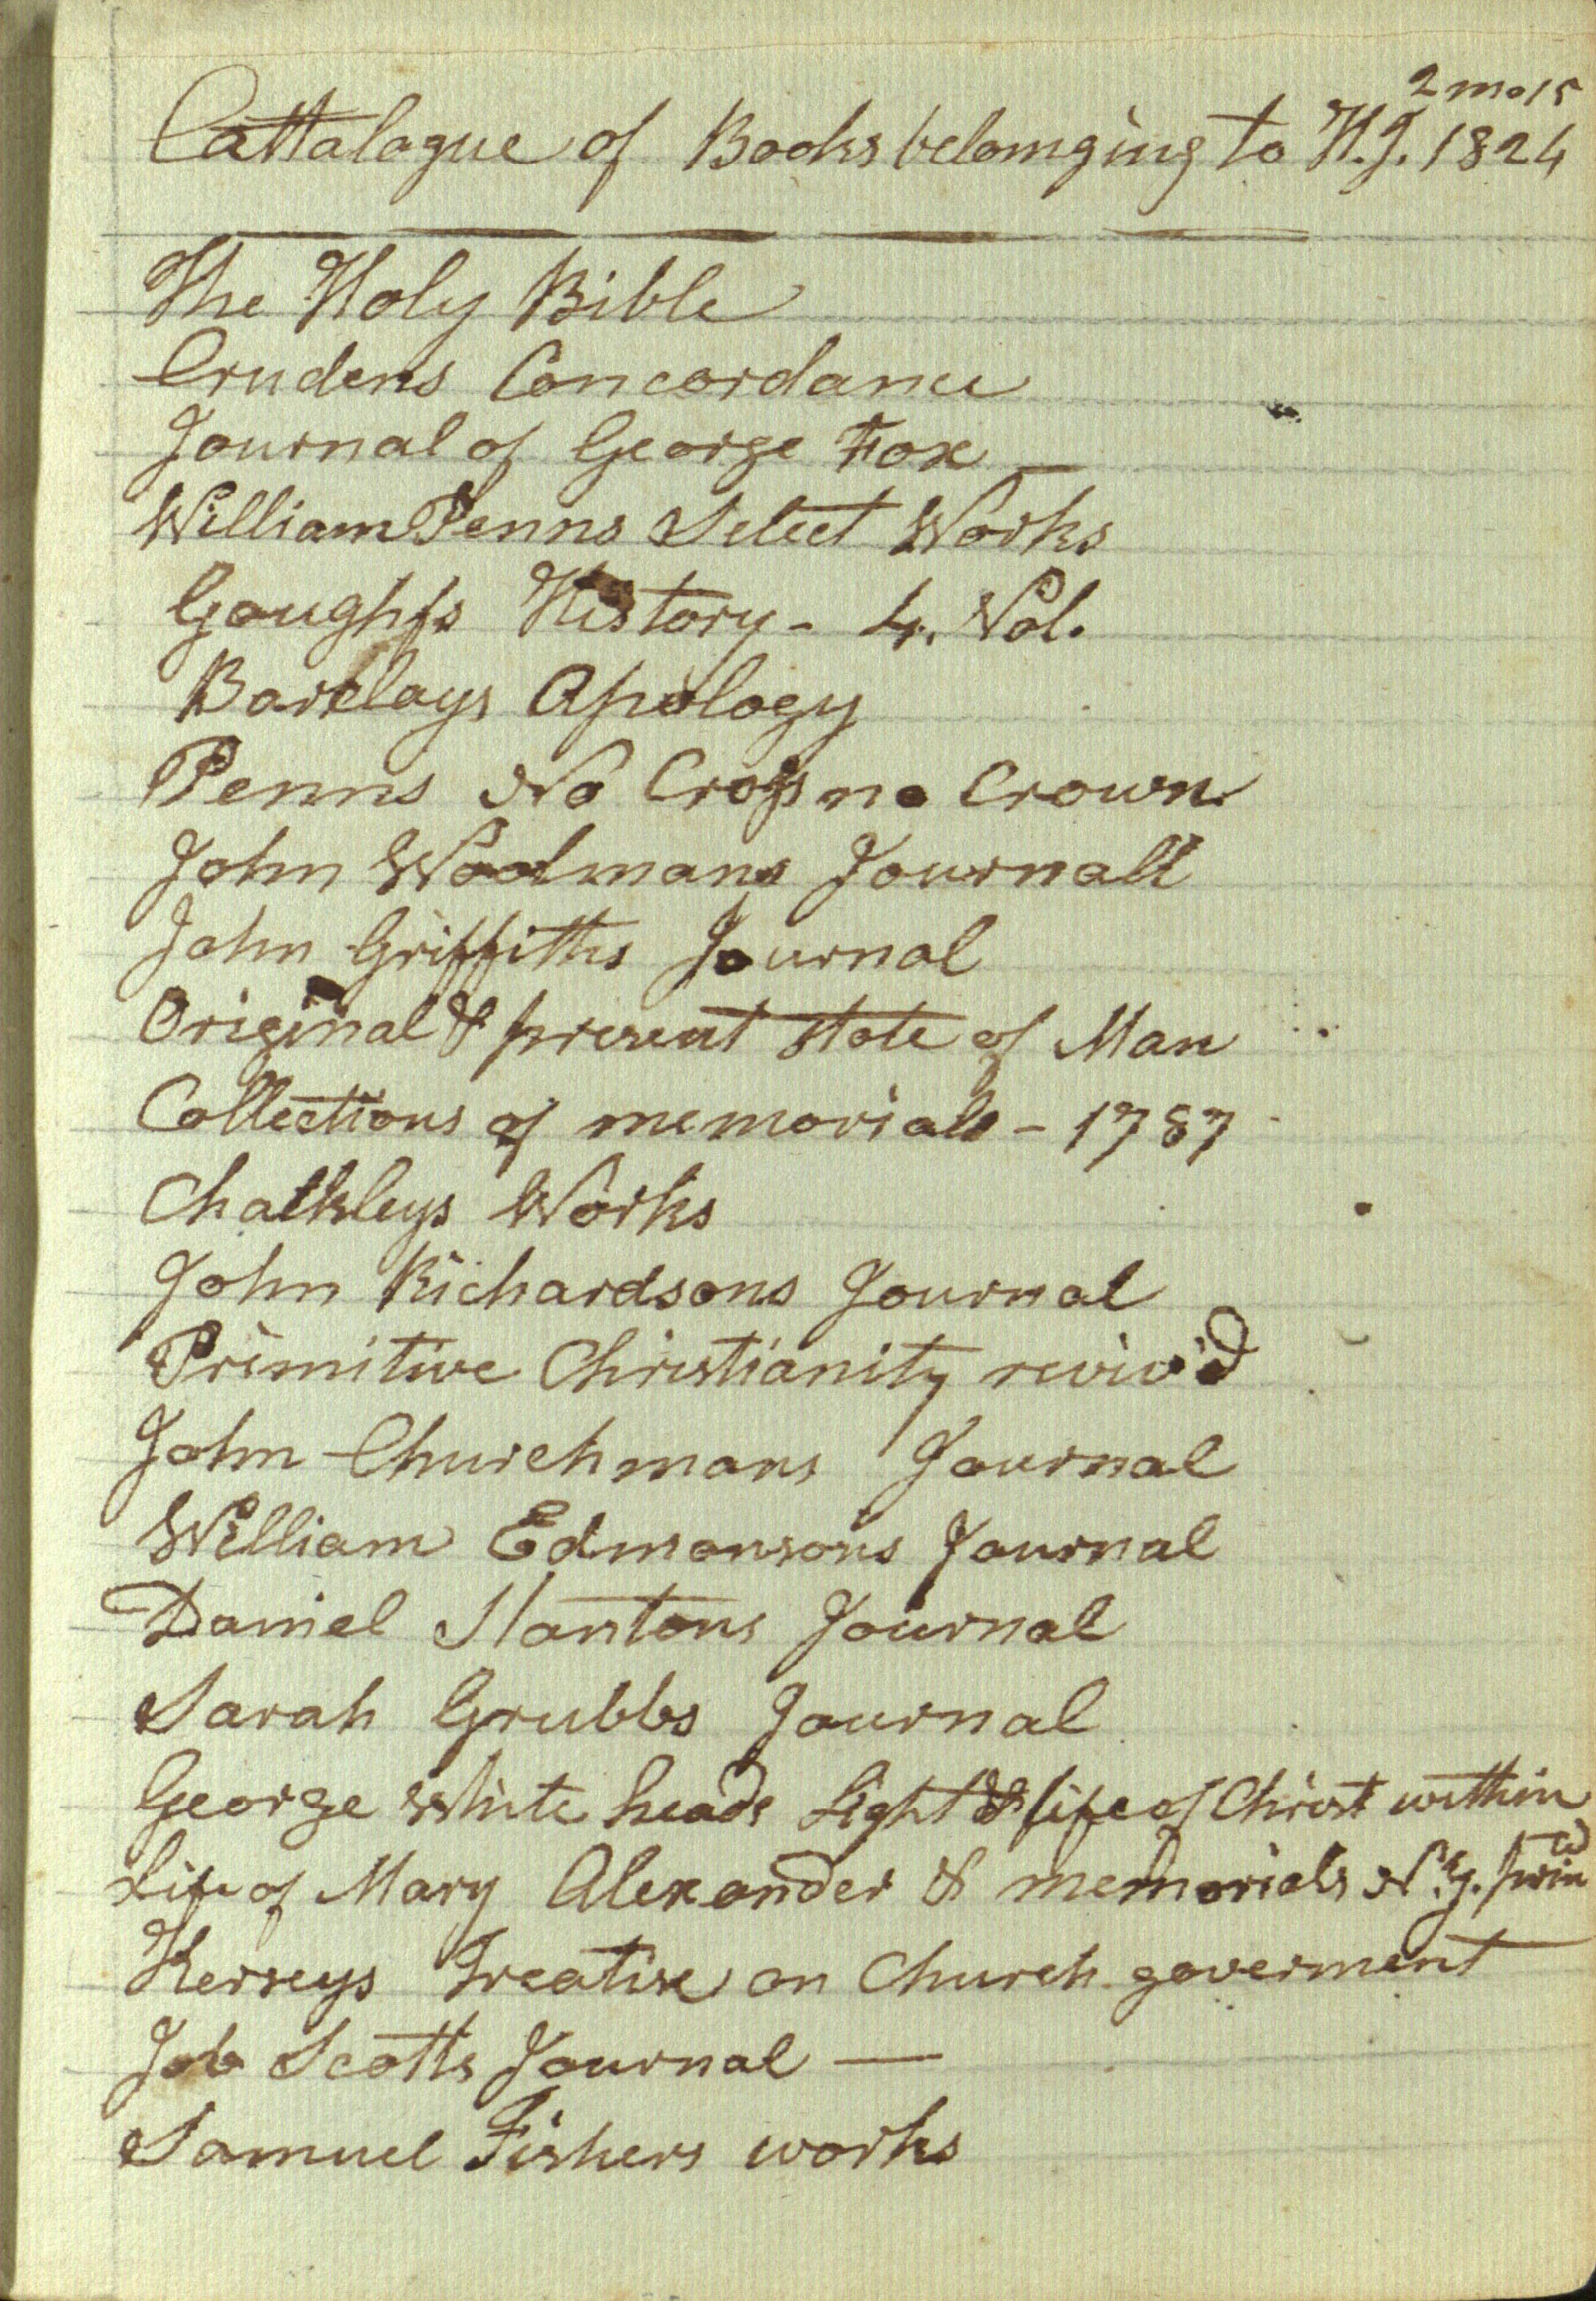 2 mo 15
Cattalogue of Books belonging to H.J. 1824
The Holy Bible
Crudens Concordance
Journal of George Fox
William Penns Select Works
Goughfs History - 4. Vol.
Barclays Apology
Penns No Crofs no Crown
John Woolmans Journall
John Griffiths Journal
Original & present state of Man
Collections of memorials - 1787
Chalkleys Works
John Richardsons Journal
Primitive Christianity reviv'd
John Churchmans Journal
William Edmonsons Journal
Daniel Stantons Journal
Sarah Grubbs Journal
George White heads Light & life of Christ within
Life of Mary Alexander & memorials
Kerseys Treatise on Church goverment
Job Scotts Journal —
Samuel Fishers works